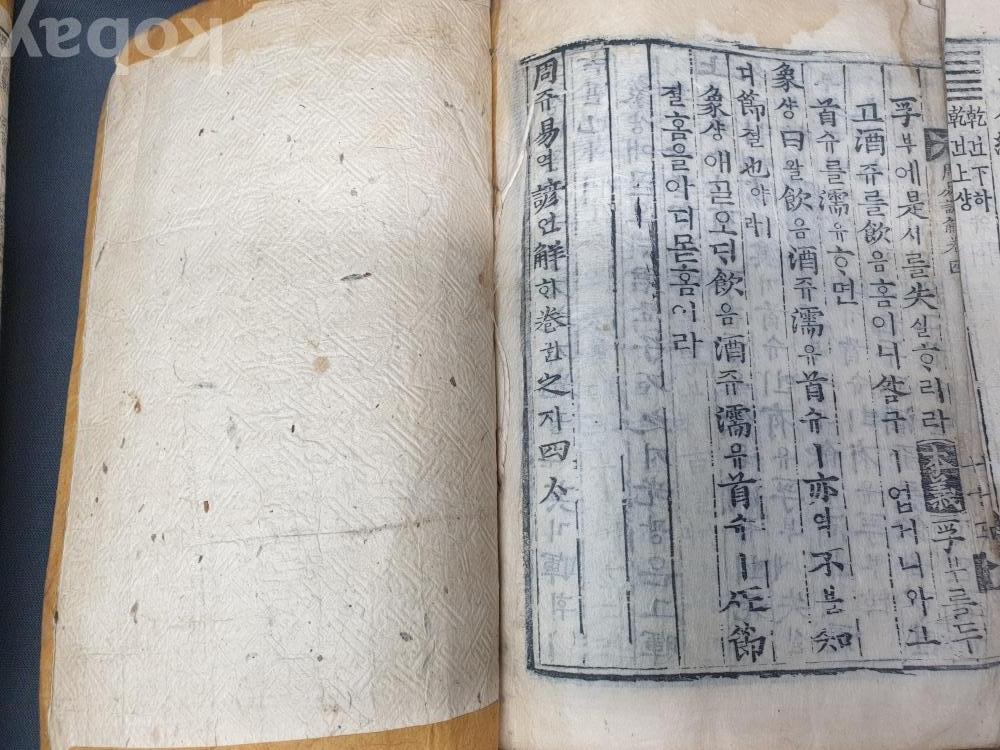 kobay
乾건下하
乾건上샹
孚부에是시를失실ᄒᆞ리라本義孚부를두
고酒쥬를飮음홈이니咎구ㅣ업거니와그
首슈를濡유ᄒᆞ면
象샹曰왈飮음酒쥬濡유首슈ㅣ亦역不블知
디節졀也야ㅣ라
象샹애ᄀᆞᆯ오ᄃᆡ飮음酒쥬濡유首슈ㅣ節
졀홈을아디몯홈이라
周쥬易역諺언解ᄒᆡ卷권之지四ᄉᆞ